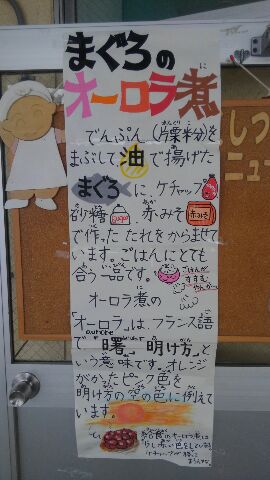 まぐろの
オーロラ煮
でんぷん(片栗粉)を
まぶして油で揚げた
まぐろに、ケチャップ
砂糖 Sugar 赤みそ
で作ったたれをからませて
います。ごはんにとても
合う一品です。
オーロラ煮の
「オーロラ」は、フランス語
aurore
で「曙」「明け方」と
いう意味です。オレンジ
がかたピンク色を
明け方の空の色に例えて
います。
しっ
ニュ